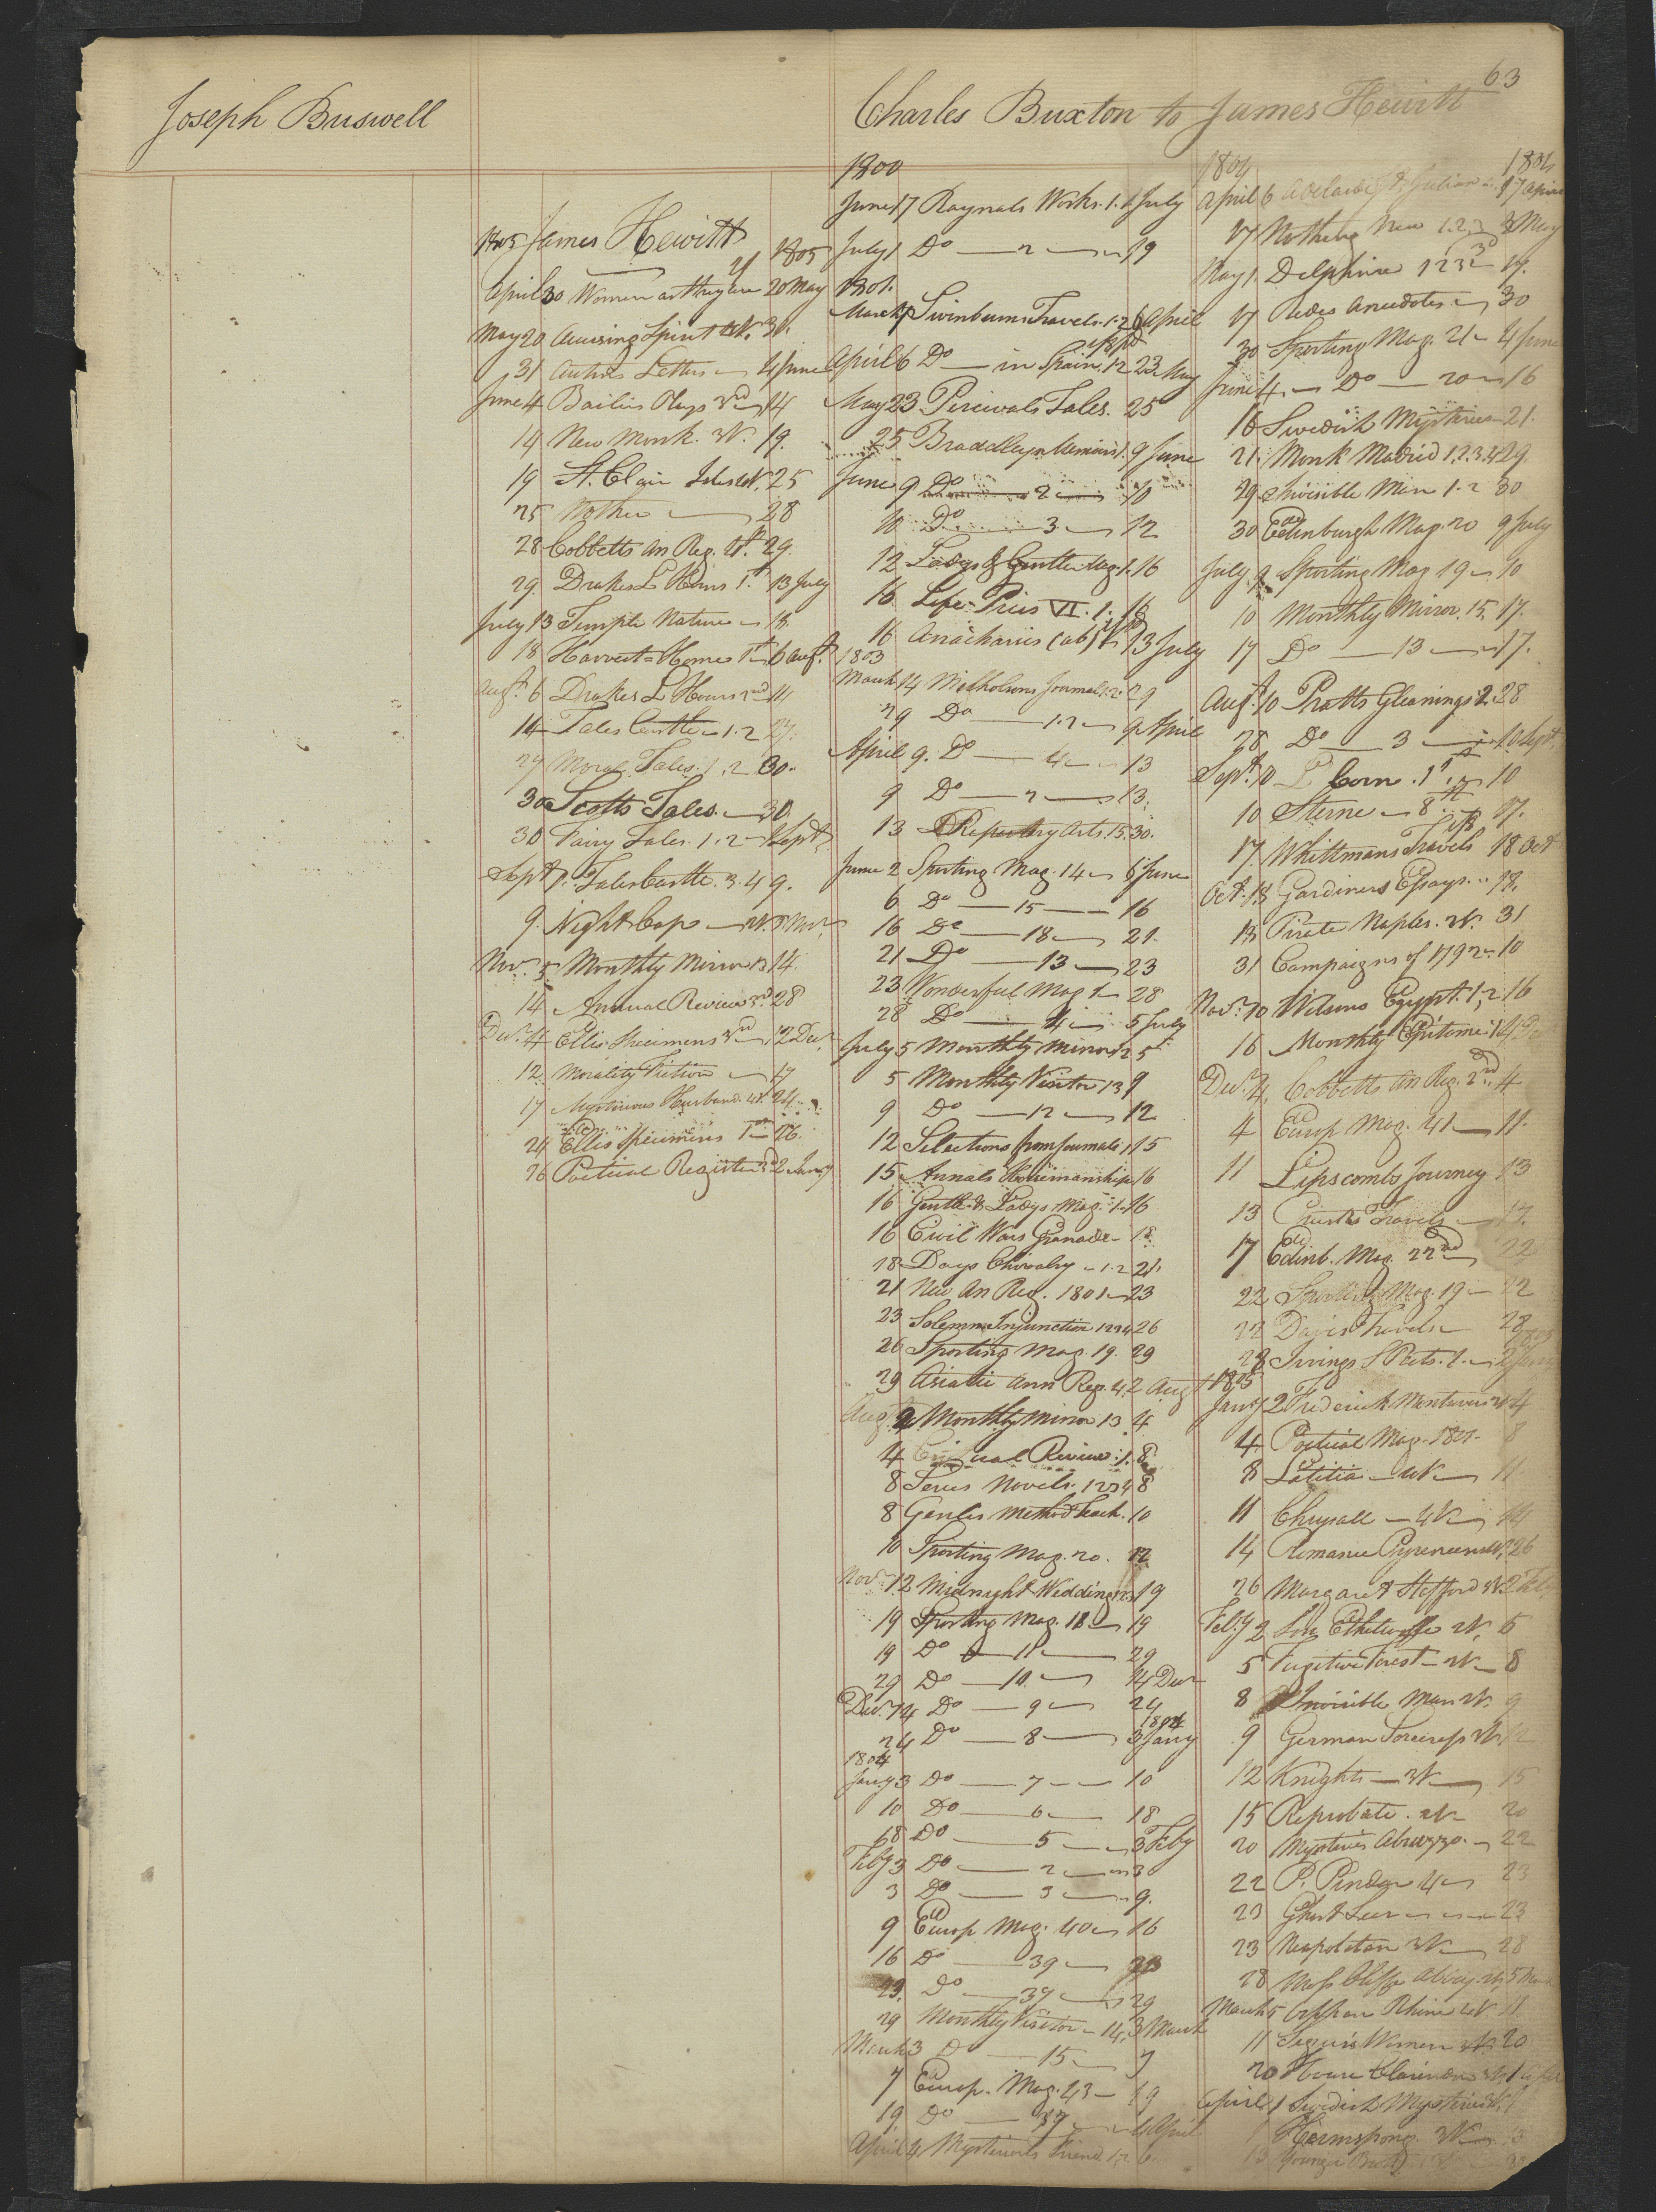 63
Joseph Buswell
Charles Buxton to James Hewitt
James Hewitt
1805 1805
April 30 Women as they are 20 May
May 20 Amusing Spirit 30.
31 Letters 4 June
June 4 Plays 3rd 14
14 New Monk. 3V. 19.
19 St. Clair Isles 4V. 25
25 Mother 28
28 Cobbetts An Reg. 29.
29 Drakes L Hours 1st 13 July
July 13 Temple Nature 18
18 Harvest=Home 1st 6 Augt.
Augt. 6 Drakes L Hours 2nd 14
14 Tales Castle 1.2 27.
27 Moral Tales. 1.2 30.
30 Scotts Tales. 30.
30 Fairy Tales. 1.2 Sept
Sept 1. Tales Castle. 3.4 9.
9. Night Cap 5 Novr
Novr. 5 Monthly Mirror 13 14.
14 Annual Review 3rd 28
Decr. 4 Ellis Specimens 3rd 12 Decr.
12 Morality Fiction 17
17 Mysterious Husband 4V. 24
24 Ellis Specimens 1st 26.
26 Poetical Register 3rd 2 Jany
1800
June 17 Raynals Works. 1. 1 July
July 1 Do 2 19
1801.
March 7 Swinburns Travels. 1.2 6 April
April 6 Do in Spain 1.2 23 May
May 23 Percivals Tales. 25
25 Braddleys Memoirs 1. 9 June
June 9 Do 2 10
10 Do 3 12
12 Ladys & Gentle Mag. 1. 16
16 Life Pius VI. 1. 16
16 Anacharsis (ab) 13 July
1803
March 14 Nicholsons Journal. 1.2. 29
29 Do 1.2 9 April
April 9. Do 4 13
9 Do 2 13.
13 Repertory Arts. 15. 30.
June 2 Sporting Mag. 14 6 June
6 Do 15 16
16 Do 18 21.
21 Do 13 23
23 Wonderful Mag 1 28
28 Do 4 5 July
July 5 Monthly Mirror 12 5
5 Monthly Visitor 13 9
9 Do 12 12
12 Selections from Journals 1 15
15 Annals Horsemanship 16
16 Gentle. & Ladys. Mag. 1. 16
16 Civil Wars Granada 18.
18 Days Chivalry 1.2 21.
21 New An Reg. 1801 23
23 Solemn Injunction 1234 26
26 Sporting Mag. 19. 29
29 Asiatic Ann Reg. 4. 2 Augt
Augt. 2 Monthly Mirror 13 4
4 Review. 1. 8
8 Series Novels. 1234 8
8 Method Teach. 10
10 Sporting Mag. 20. 12
Novr. 12 Midnight Wedding 123 19
19 Sporting Mag. 12 19
19 Do 11 29
29 Do 10. 14 Decr
Decr. 14 Do 9 24
24 Do 8 3 Jany 1804
1804
Jany 3 Do 7 10
10 Do 6 18
18 Do 5 3 Feby
Feby 3 Do 2 3
3 Do 3 9.
9 Europ Mag. 40 16
16 Do 39 23
23. Do 37 29
29 Monthly Visitor 14. 3 March
March 3 Do 15 7
7 Europ. Mag. 43 19
19. Do 4 April
April 4 Mysterious Friend 1,2 6
1804 1804
April 6 Adelaide & St. Julian 17 April
17 Nothing New 1.2.3 3 May
May 1. Delphine 1 2 3 17.
17 Anecdotes 30
30 Sporting Mag. 21 4 June
June 4. Do 20 16
16 Swedish Mysteries 21.
21. Monk Madrid 1.2.3.4 29.
29 Invisible Man 1.2 30
30 Edinburgh Mag. 20 9 July
July 9 Sporting Mag 19 10
10 Monthly Mirror. 15. 17.
17 Do 13 17.
Augt. 10 Pratts Gleanings 2. 28
28 Do 3 10 Sept.
Sept. 10 Corn. 1st 10
10 Sterne 8 17.
17. Whittmans Travels 18 Oct
Oct. 18 Gardiners Essays. 18.
18 Pirate Naples. 3V. 31
31 Campaigns of 1792 10
Novr. 10 Wilsons Egypt. 1.2 16
16 Monthly Epitome 1
Decr. 4. Cobbetts An Reg. 2nd. 4
4 Europ Mag. 41 11.
11 Lipscombs Journey 13
13 Travels 17.
17 Edinb. Mag. 22nd 22
22 Sporting Mag. 19 22
22 Davis Travels 28
28 Irvings S Poets. 1. 2 Jany
1805
Jany 2 Frederick 4
4. Poetical Mag. 1801 8
8 Lætitia 4V 11
11 Chrysall 4V 14
14 Romance Pyrenees 4V. 26
26 Margaret Stafford 2 Feby
Feby 2 Son Ethelwolfe 2V. 5
5 Fugitive Forest 2V 8
8 Invisible Man 2V. 9
9 German Sorceress 3V 12
12 Knights 3V 15
15 Reprobate. 2V 20
20 Mysteries Abruzzo. 22
22 P. Pindar 4 23
23 Ghost Seer 23
23 Neapolitan 3V 28
28 Moss Cliff Abbey. 5 March
March 5 Orphan Rhine 4V 11
11 Segurs Women 3V. 20
20 Clarendon 1 April
April 1 Swedish Mysteries 3V.
Hermsprong. 3V 3
13 Younger Broth